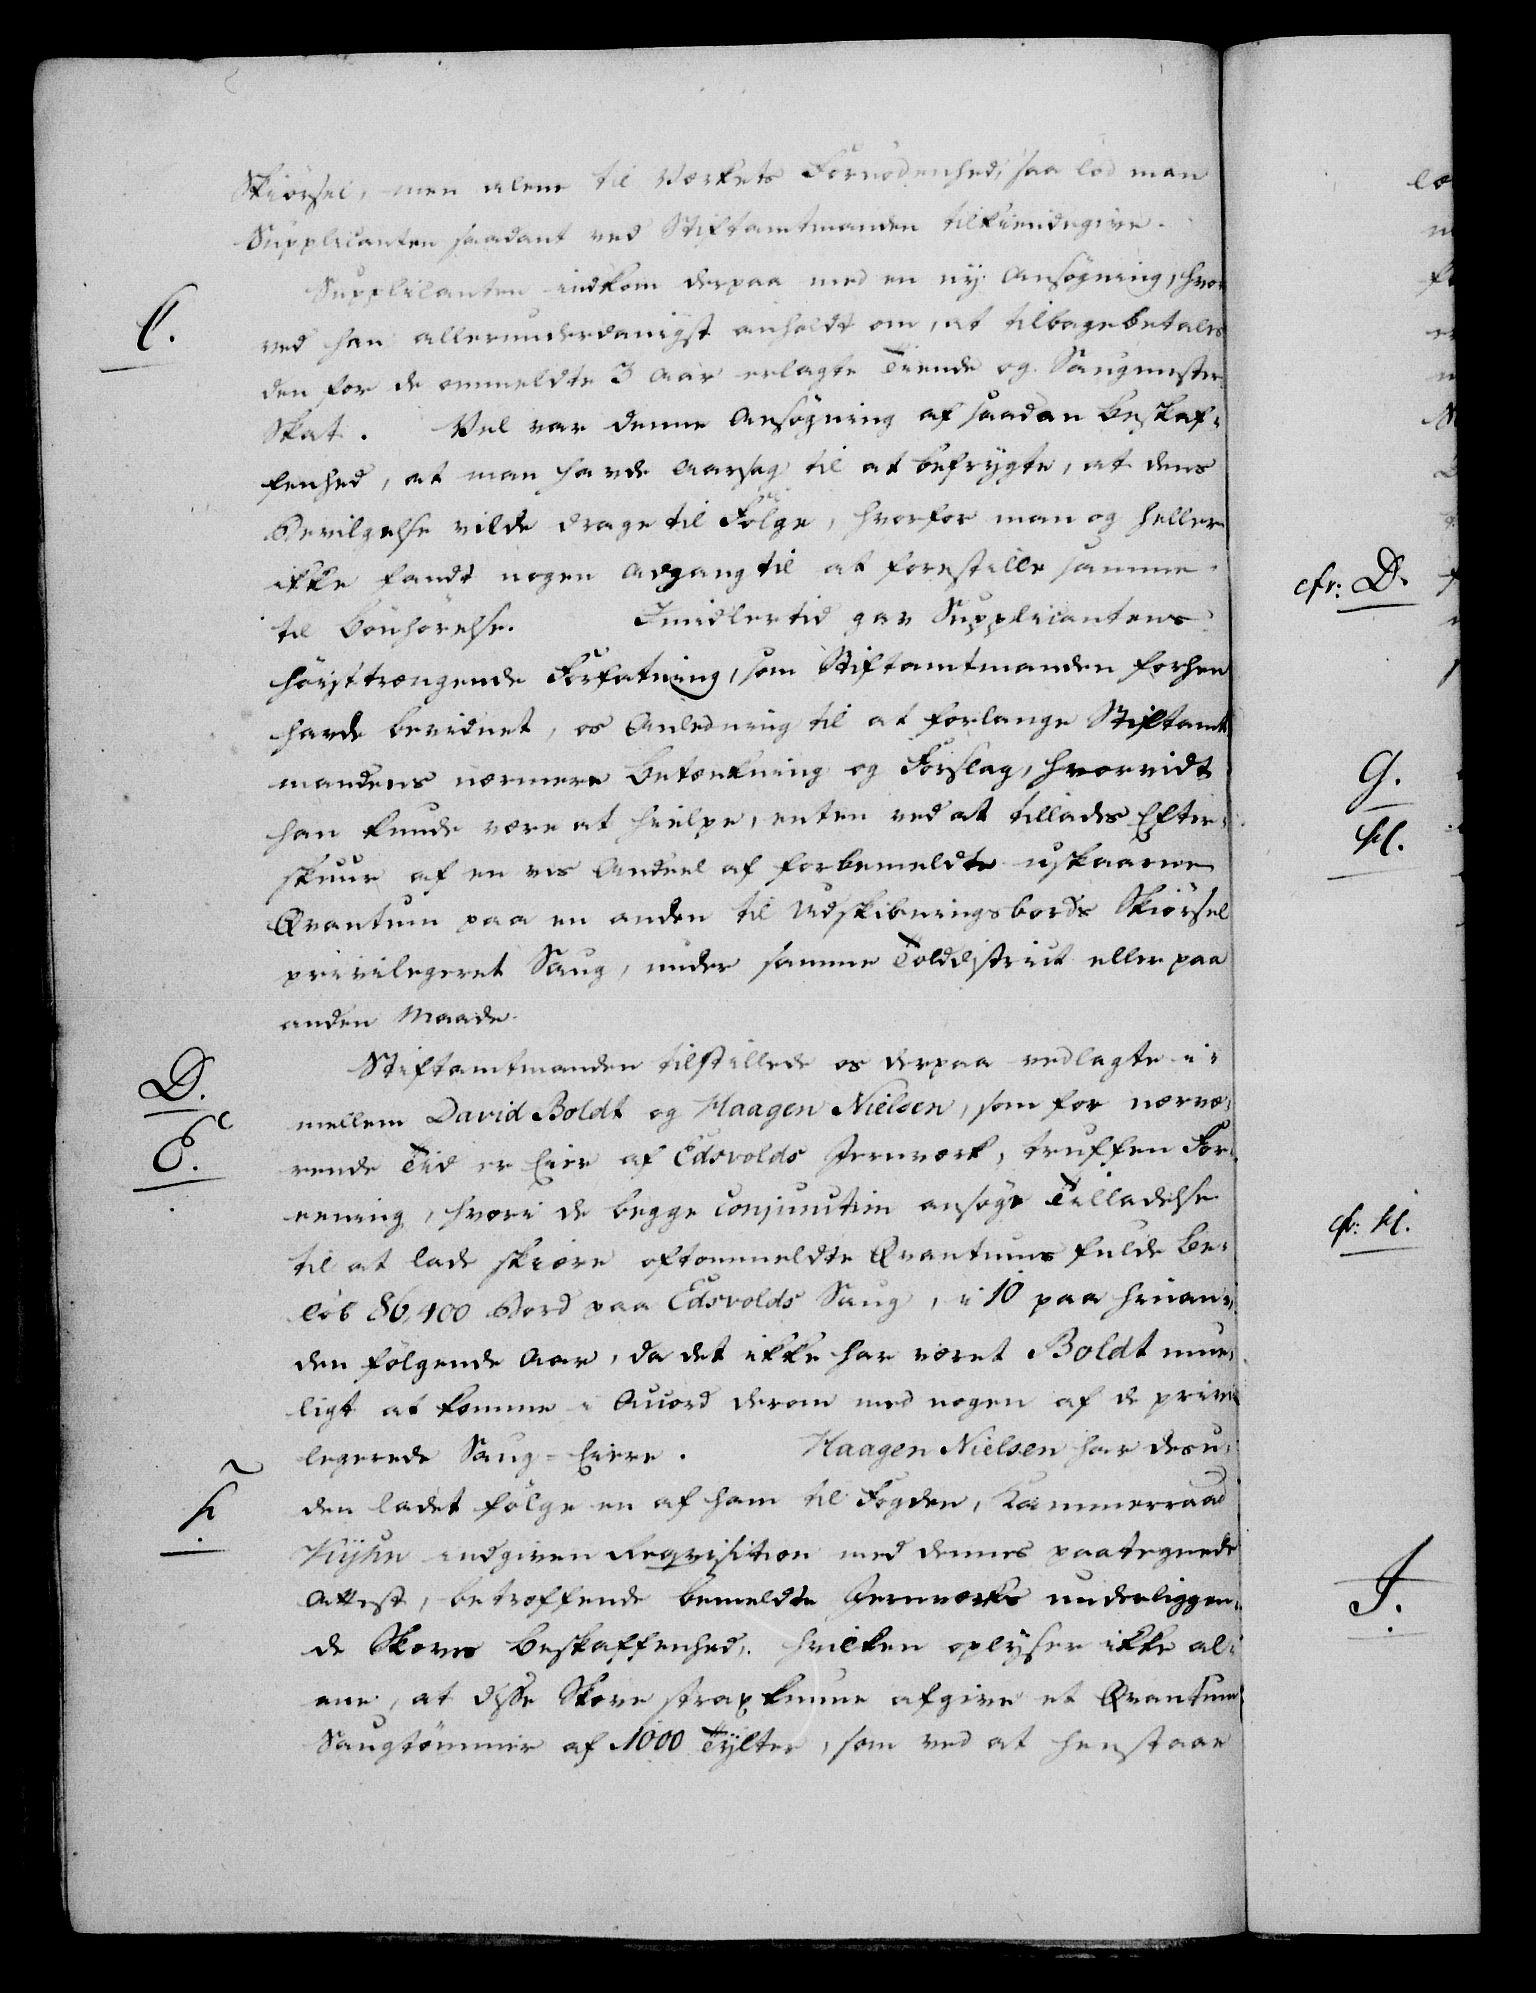 Skiörsel, men alene til Værkets Fornødenhed, saa lod man
Supplicanten saadant ved Stiftamtmanden tilkiendegive.
C.
Supplicanten indkom derpaa med en ny Ansøgning, hvor
ved han allerunderdanigst anholdt om, at tilbagebetales
den for de ommeldte 3 Aar erlagte Tiende og Saugmester
Skat. Vel var denne Ansøgning af saadan Beskaf-
fenhed, at man havde Aarsag til at befrygte, at dens
Bevilgelse vilde drage til Følge, hvorfor man og heller
ikke fandt nogen Adgang til at forestille samme
til Bönhörelse. Imidlertid gav Supplicantens
höysttrængende Forfatning, som Stiftamtmanden forhen
havde bevidnet, os Anledning til at forlange Stiftamt
mandens nærmere Betænkning og Forslag, hvorvidt
han kunde være at hielpe, enten ved at tillades Efter-
skuur af en vis Andeel af forbemeldte uskaarne
Qvantum paa en anden til Udskibningsbords Skiörsel
privilegeret Saug, under samme Tolddistrict eller paa
anden Maade.
D.
E.
Stiftamtmanden tilstillede os derpaa vedlagte i-
mellem David Boldt og Haagen Nielsen, som for nærvæ-
rende Tid er Eier af Edsvolds Jernværk, truffen For-
eening, hvori de begge conjunctim ansøge Tilladelse
til at lade skiære oftommeldte Qvantums fulde Be-
löb 86,400 Bord paa Edsvolds Saug, i 10 paa hinan-
den følgende Aar, da det ikke har været Boldt mue-
ligt at komme i Accord derom med nogen af de privi
legerede Saug-Eiere. Haagen Nielsen har desu-
F.
den ladet følge en af ham til Fogden, Kammerraad
Kyhn indgiven Reqvisition med dennes paategnede
Attest, betræffende bemeldte Jernværks underliggen-
de Skovs Beskaffenhed, hvilken oplyser ikke al-
ene, at disse Skove strax kunne afgive et Qvantum
Saugtömmer af 1000 Tylter, som ved at henstaae
cfr: D.
G.
H.
cfr: H.
I.